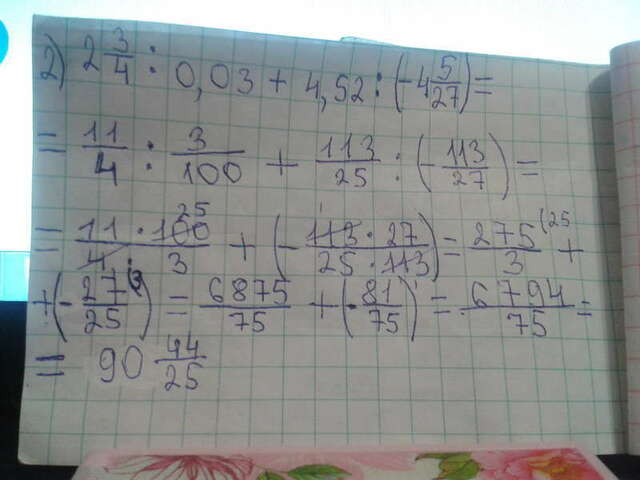 2) 2 3/4 : 0,03 + 4,52 : (-4 5/27) =
= 11/4 : 3/100 + 113/25 : (-113/27) =
= 11·100 25/4·3 + (-113·27 1/25·113) = 275/3 (25 +
+ (-27/25) (3 = 6875/75 + (-81/75) = 6794/75 =
= 90 44/25